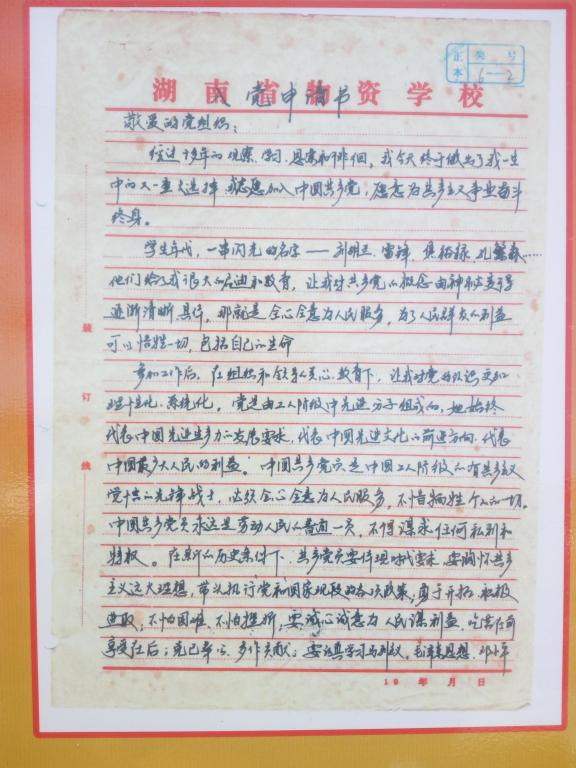 正本 类 号
6—2
湖南省物资学校
入党申请书
敬爱的党组织：
经过十多年的观察、学习、思索和徘徊，我今天终于做出了我一生
中的又一重大选择，我志愿加入中国共产党，愿意为共产主义事业奋斗
终身。
学生年代，一串闪光的名字——刘胡兰、雷锋、焦裕禄、孔繁森……
他们给了我很大的启迪和教育，让我对共产党的概念由神秘变得
逐渐清晰、具体，那就是全心全意为人民服务，为了人民群众的利益
可以牺牲一切，包括自己的生命
参加工作后，在组织和领导人关心、教育下，让我对党的认识更加
理性化、系统化。党是由工人阶级中先进分子组成的，她始终
代表中国先进生产力的发展要求，代表中国先进文化的前进方向，代表
中国最广大人民的利益。中国共产党员是中国工人阶级的有共产主义
觉悟的先锋战士，必须全心全意为人民服务，不怕牺牲个人的一切。
中国共产党员永远是劳动人民的普通一员，不得谋求任何私利和
特权。在新的历史条件下，共产党员要体现时代要求，要胸怀共产
主义远大理想，带头执行党和国家现阶段的各项政策，勇于开拓，积极
进取，不怕困难，不怕挫折；要诚心诚意为人民谋利益，吃苦在前
享受在后；克己奉公，多作贡献；要认真学习马列主义、毛泽东思想、邓小平
19 年 月 日
装
订
线